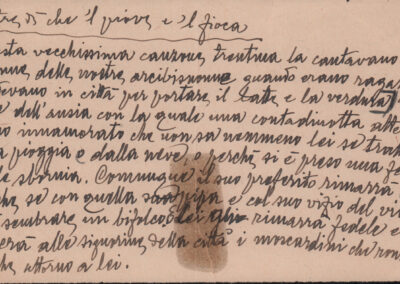 tre dì che 'l piove e 'l fioca
sta vecchissima canzone trentina la cantavano
nne delle nostre arcibisnonne quando erano ragaz
evano in città per portare il latte e la verdura
dell'ansia con la quale una contadinotta atte
o innamorato che non sa nemmeno lei se trat
a pioggia e dalla neve o perchè si è preso una fe
le sbornia. Comunque il suo preferito rimarrà
he se con quella pipa e col suo vizio del vi
sembrare un bifolco: lei gli rimarrà fedele e
erà alle signorine della città i moscardini che ron
he attorno a lei.